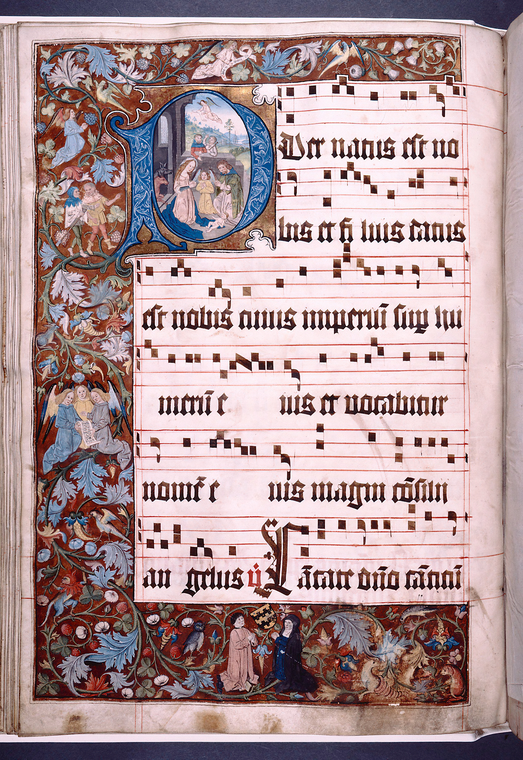 PUer natus est no
bis et fi lius datus
est nobis cuius imperiū sup hu
merū e ius et vocabitur
nomē e ius magni cōsilii
an gelus v̄ Cātate dño